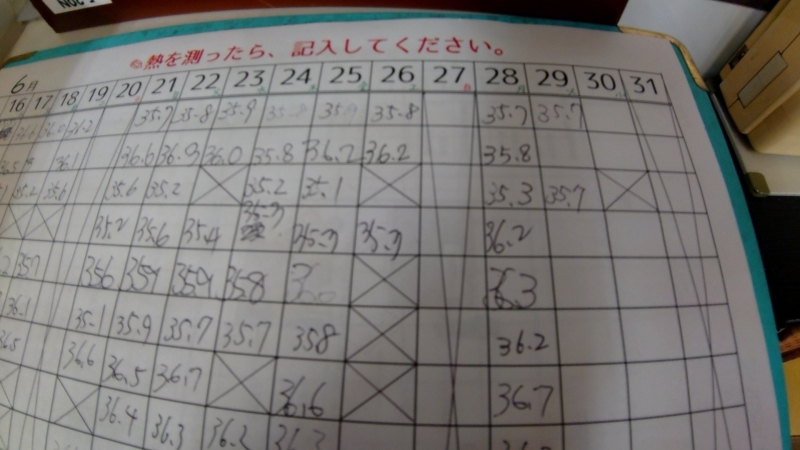 熱を測ったら、記入してください。
6月
16 17 18 19 20 21 22 23 24 25 26 27 28 29 30 31
35.7 35.8 35.9 35.8 35.8 35.7 35.7
36.1 36.6 36.9 36.0 35.8 36.2 36.2 35.8
35.6 35.2 35.2 35.1 35.3 35.7
35.2 35.6 35.4 35.3 35.3 35.3 36.2
357 356 359 359 358 36.3
36.1 35.1 35.9 35.7 35.7 358 36.2
36.5 36.6 36.5 36.7 36.6 36.7
36.4 36.3 36.2 36.3